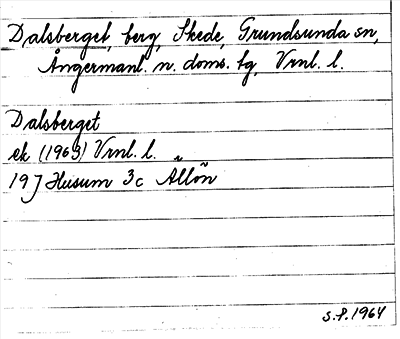 Dalsberget, berg, Skede, Grundsunda sn,
Ångermanl. n. doms. tg, Vrnl. l.
Dalsberget
ek (1963) Vrnl. l.
19 J Husum 3c
S.P. 1964